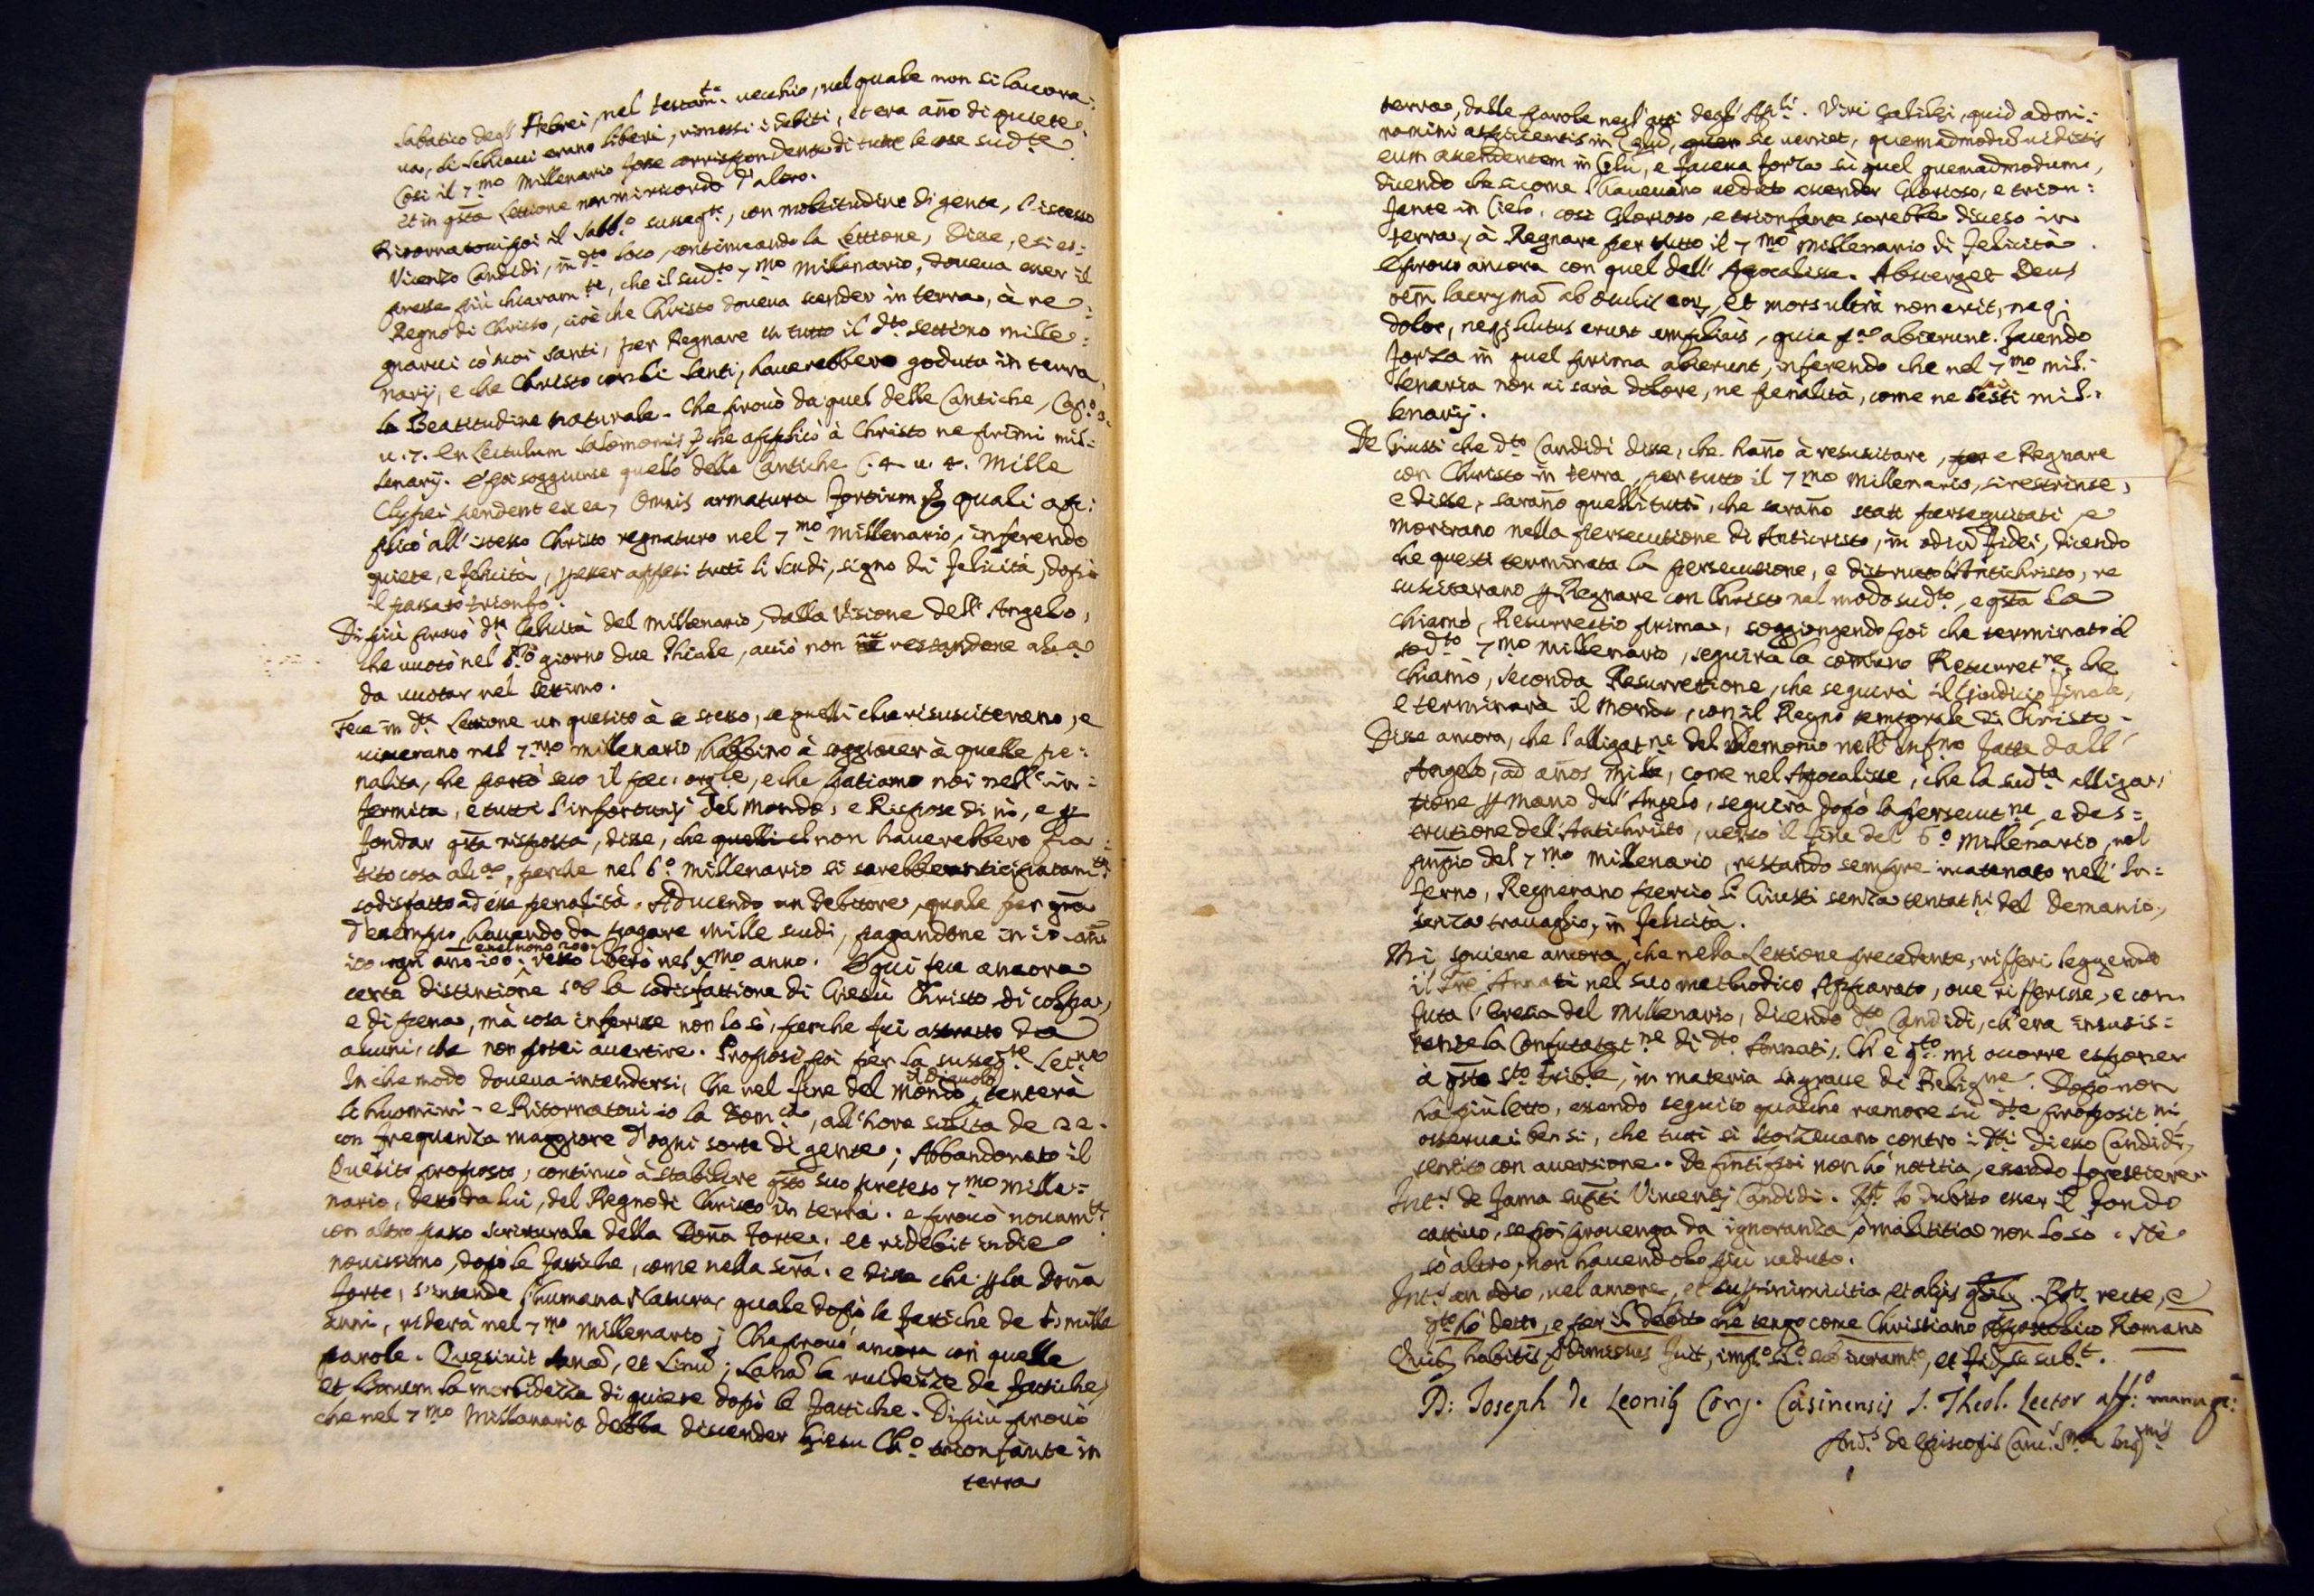 Sabatico degl' Hebrei, nel testam.te vecchio, nel quale non si lauora:
ua, li schiaui erano liberi, rimessi i debiti, et era año di quiete.
Così il 7.mo Millenario fosse corrispondente di tutte le cose sud.te
et in qsta Lettione non mi ricordo d'altro.
Ritornatoui poi il Sabb.o susseg.te, con moltitudine di gente, l'istesso
Vicenzo Candidi, in d.to loco, continuando la Lettione, Disse, e si es:
presse più chiaram.te, che il sud.to 7.mo Millenario, doueua esser il
Regno di Christo, cioè che Christo doueua scender in terra, à re:
gnarui co' suoi santi, per Regnare in tutto il d.to settimo mille:
narij, e che Christo con li Santi, hauerebbero goduta in terra,
la Beatitudine naturale. Che prouò da quel delle Cantiche, Cap.o 3.
u. 7. En Lectulum Salomonis che applicò à Christo ne primi mil:
lenarij. E poi soggiunse quello della Cantiche C. 4. u. 4. Mille
Clypei pendent ex ea, Omnis armatura fortium quali ap:
plicò all'istesso Christo regnaturo nel 7.mo Millenario, inferendo
quiete, e felicità, esser appesi tutti li scudi, signo di felicità, dopò
il passato trionfo.
Di più prouò d.ta felicità del Millenario, dalla Visione dell'Angelo,
che uuotò nel 6.to giorno due Phiale, acciò non restandone alc.a
da uuotar nel settimo.
Fece in d.ta Lettione un quesito à se stesso, se quelli che risusciterano, e
uiuerano nel 7.mo millenario, habbino à soggiacer à quelle pe:
nalità, che portò seco il pec: orgle, e che patiamo noi nell'in:
fermità, e tutti l'infortunij del mondo, e Rispose di nò, e p
fondar qsta risposta, disse, che non hauerebbero pa:
tito cosa alc.a, perche nel 6.o millenario si sarebbe anticipatam.te
sodisfatto ad esse penalità. Aducendo un debitore, quale per
d'esempio, hauendo da pagare mille scudi, pagandone in 10 anni
100 ogn' ano 100, e nel nono 200 resta libero nel X.mo anno. E qui fece ancora
certa distintione sob la sodisfattione di Giesù Christo di colpa,
e di pena, mà cosa inferisse non lo sò, perche fui da
alcuni, che non potei auertire. Proposi poi per la susseg.te Lec.ne
In che modo doueua intendersi, che nel fine del mondo, il Diauolo tenterà
li huomini. e Ritornatoui io la Dom.ca, all'hora solita de 22.
con frequenza maggiore d'ogni sorte di gente; Abbandonato il
Quesito proposto, continuò à stabilire qsto suo preteso 7.mo mille:
nario, detto da lui, del Regno di Christo in terra. e prouò nouam.te
con altro passo scritturale della Doña forte. et ridebit in die
nouissimo, dopò le fatiche, come nella sera. e disse che p la Doña
forte, s'intende l'humana Natura, quale dopò le fatiche de 6: milla
anni, riderà nel 7.mo Millenario; Che prouò ancora con quelle
parole. Quesiuit lanã, et Linũ; Lanã le ruidezze de fatiche,
et Linum la morbidezza di quiete dopò le fattiche. Di più prouò
che nel 7.mo Millenario debba discender Giesu Ch.o trionfante in
terra
terra, dalle parole negl' atti degl' Ap.li. Viri Galilei, quid admi:
ramini aspicientis in Celũ, sic veniet, quemadmodũ uidistis
eum ascendentem in Celũ, e faceua forza sù quel quemadmodum,
dicendo che sicome l'haueuano ueduto ascender Glorioso, e trion:
fante in Cielo, così Glorioso, e trionfante sarebbe disceso in
terra, à Regnare per tutto il 7.mo millenario di felicità.
E prouò ancora con quel dell' Apocalisse. Absterget Deus
oẽm lacrymã ab oculis eoz, et mors ultrà non erit, neq;
dolor, neq; luctus erunt amplius, quia p.a abierunt. facendo
forza in quel prima abierunt, inferendo che nel 7.mo mil:
lenario non ui sarà dolore, ne penalità, come ne sei mil:
lenarij.
De Giusti che d.to Candidi disse, che hano à resuscitare, e Regnare
con Christo in terra, per tutto il 7.mo Millenario, si restrinse,
e disse, sarano quelli tutti, che sarano stati perseguitati, e
morirano nella persecutione di Anticristo, in odiũ fidei, dicendo
che questi terminata la persecutione, e distrutto l'Antichristo, re
suscitarano p Regnare con Christo nel modo sud.to, e qsta la
chiamò, Resurrectio prima, soggiongendo poi che terminato il
sud.to 7.mo millenario, seguirà la comune Resurret.ne che
chiamò, seconda Resurretione, che seguirà il Giudicio finale,
e terminarà il Mondo, con il Regno temporale di Christo.
Disse ancora, che l'alligat.ne del Demonio nell' Inf.no fatta dall'
Angelo, ad anos mille, come nel Apocalisse, che la sud.ta alliga,
tione p mano dell'Angelo, seguirà dopò la persecut.ne, e des=
trutione dell'Antichristo, uerso il fine del 6.o Millenario, nel
prin̄pio del 7.mo Millenario, restando sempre incatenato nell'In=
ferno, Regnerano perciò li Giusti senza tentat.ni del Demonio,
senza trauaglio, in felicità.
Mi souiene ancora, che nella Lettione precedente, rifferì leggendo
il Pre Annati nel suo methodico Apparato, oue rifferisse, e con
futa l'eresia del Millenario, dicendo d.to Candidi, ch'era insusis=
tente la Confutat.ne di d.to Annati. Ch'è q.to mi occorre esponer
à qsto S.to Trib.le, in materia sì graue di Relig.ne. Dopò non
hà più letto, essendo seguito qualche rumore sù d.te proposit.ni,
osseruai ben si, che tutti si storzeuano contro i d.ti di esso Candidi,
sentito con auersione. De pinti poi non hò notitia, essendo forestiere.
Int.s de fama supti Vincentij Candidi. R.t lo dubito esser il fondo
cattiuo, se poi prouenga da ignoranza, ò malitia non lo sò. Nè
sò altro, non hauendolo più ueduto.
Int.s an odio, uel amore, et inimicitia et alijs glibz. R.t recte, e
q.to hò detto, e per il debito che tengo come Christiano Apostolico Romano
Quibz habitis dimissus fuit, imp.o si.o sub iuram.to, et se sub.t.
D: Joseph de Leonibz Cong. Casinensis S. Theol. Lector aff: manu p:
And.s de Episcopis Canc.s